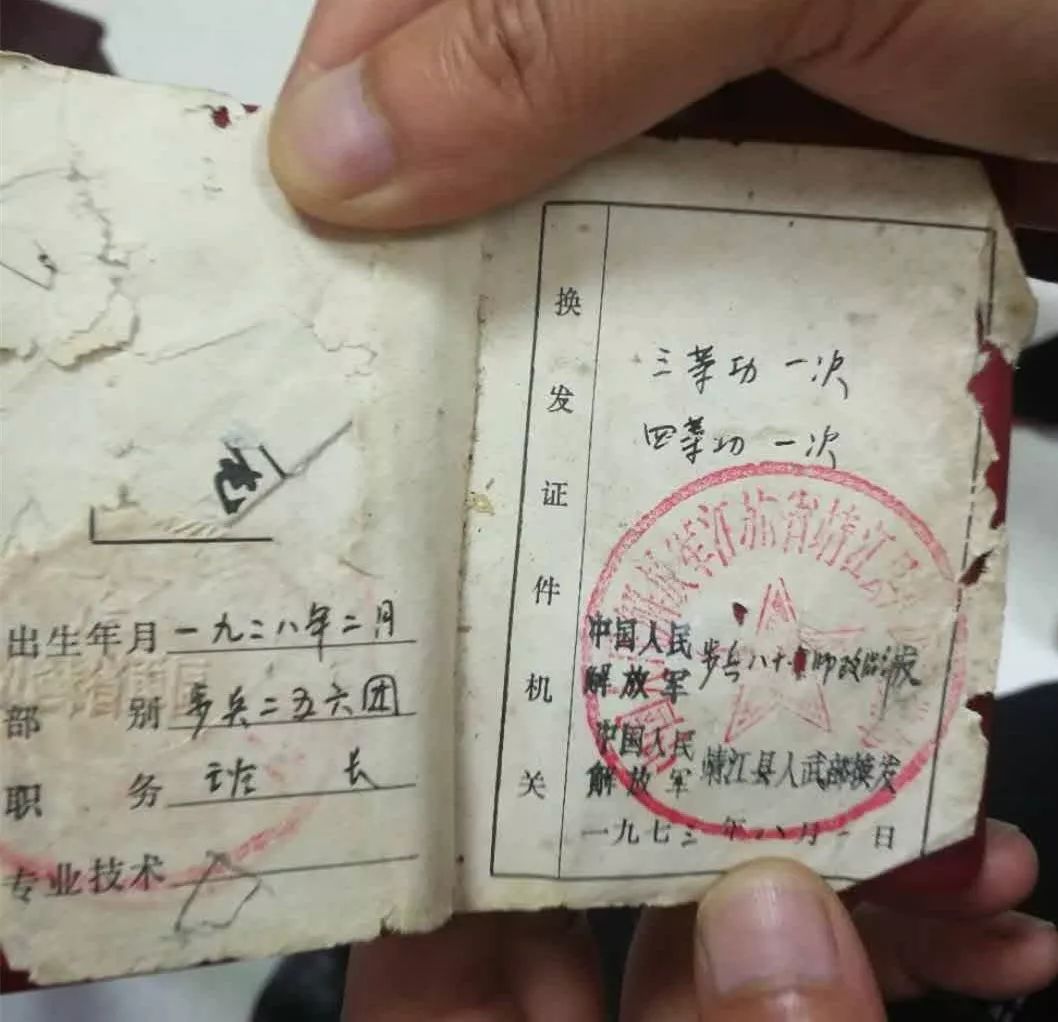 出生年月 一九二八年二月
部别 步兵二五六团
职务 班长
专业技术
换发证件机关
三等功 一次
四等功 一次
中国人民解放军 步兵八十 师政
中国人民解放军 靖江县人武部换发
一九七三年八月一日
江苏省靖江县